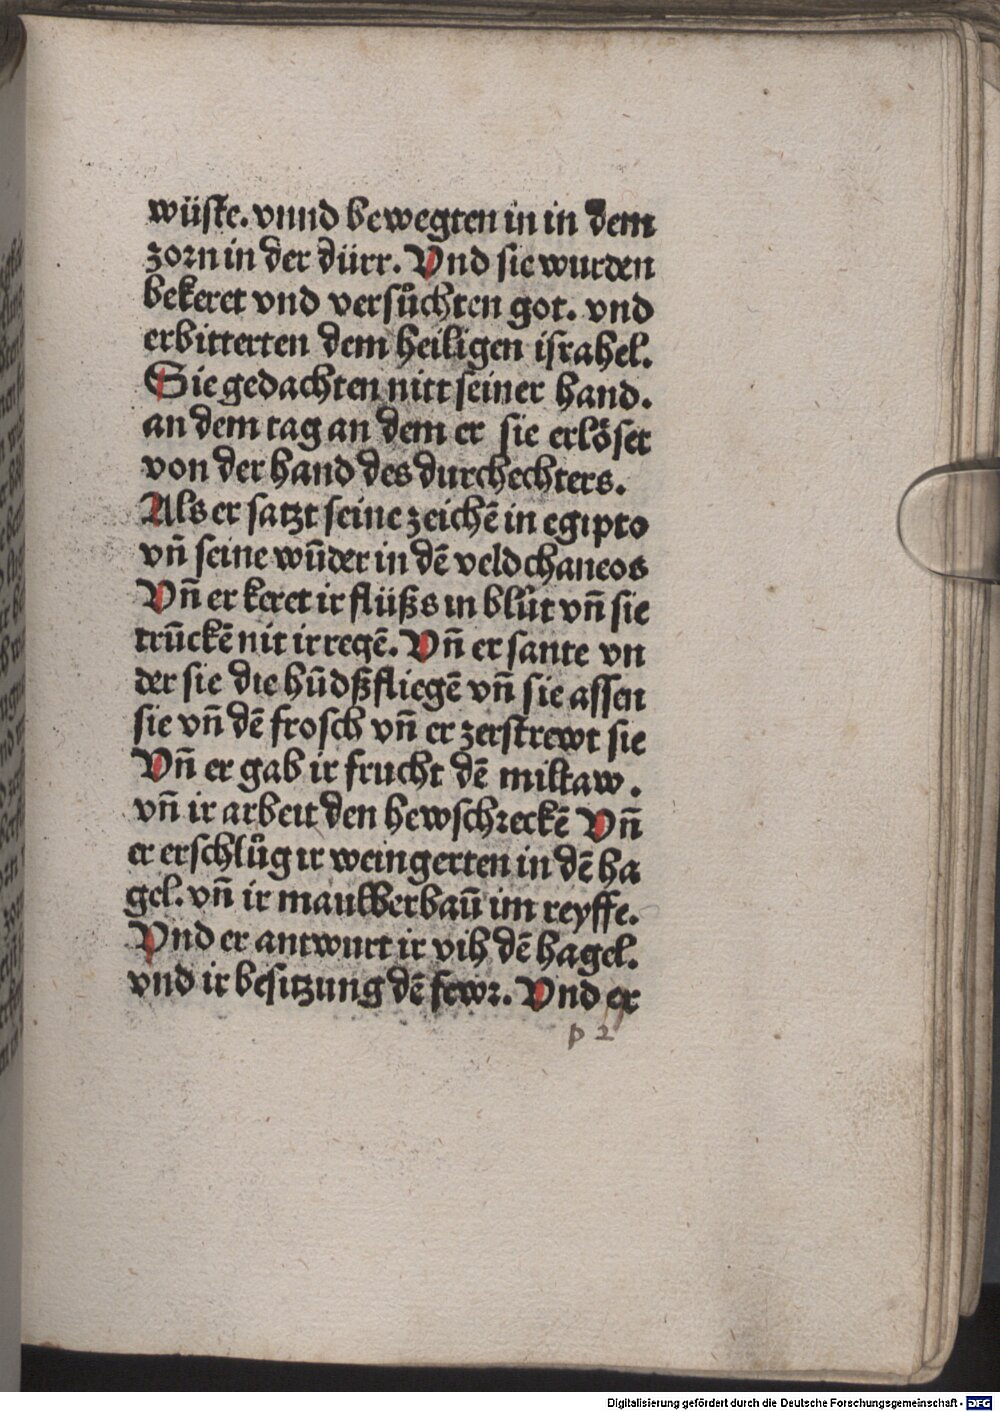 wüste. vnnd bewegten in in dem
zorn in der dürr. Vnd sie wurden
bekeret vnd versůchten got. vnd
erbitterten dem heiligen israhel.
Sie gedachten nitt seiner hand.
an dem tag an dem er sie erlöset
von der hand des durchechters.
Als er satzt seine zeichē in egipto
vñ seine wūder in dē veld chaneos
Vñ er keret ir flüßs in blůt vñ sie
trūckē nit ir regē. Vñ er sante vn
der sie die hūdßfliegē vñ sie assen
sie vñ dē frosch vñ er zerstrewt sie
Vñ er gab ir frucht dē miltaw.
vñ ir arbeit den hewschreckē Vñ
er erschlůg ir weingerten in dē ha
gel. vñ ir maulberbaū im reyffe.
Vnd er antwurt ir vih dē hagel.
vnd ir besitzung dē fewr. Vnd er
p 2
Digitalisierung gefördert durch die Deutsche Forschungsgemeinschaft - DFG